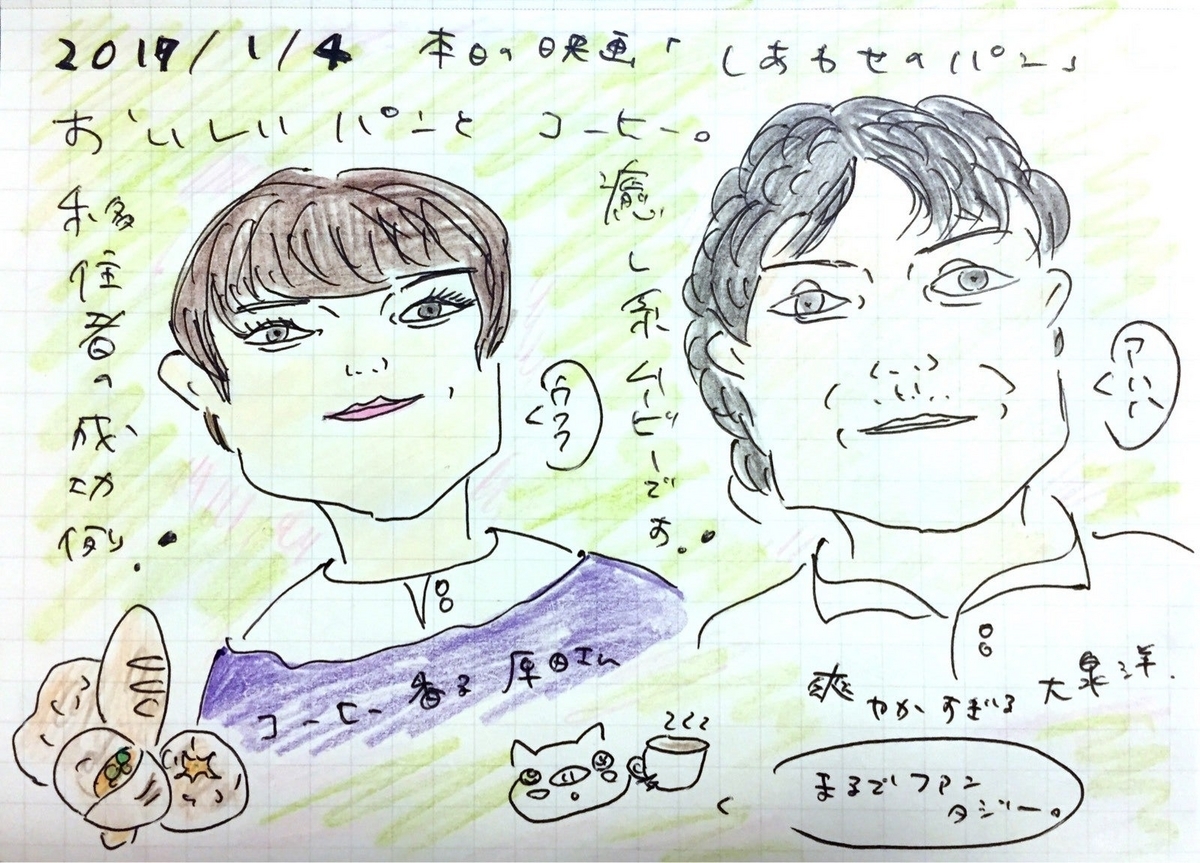 2017/1/4 本日の映画「しあわせのパン」
おいしいパンとコーヒー。
移住者の成功例。
癒し系ムービーです。
ウフフ
アハハ
コーヒー香る 原田知世
爽やかすぎる 大泉洋.
まるでファン
タジー。